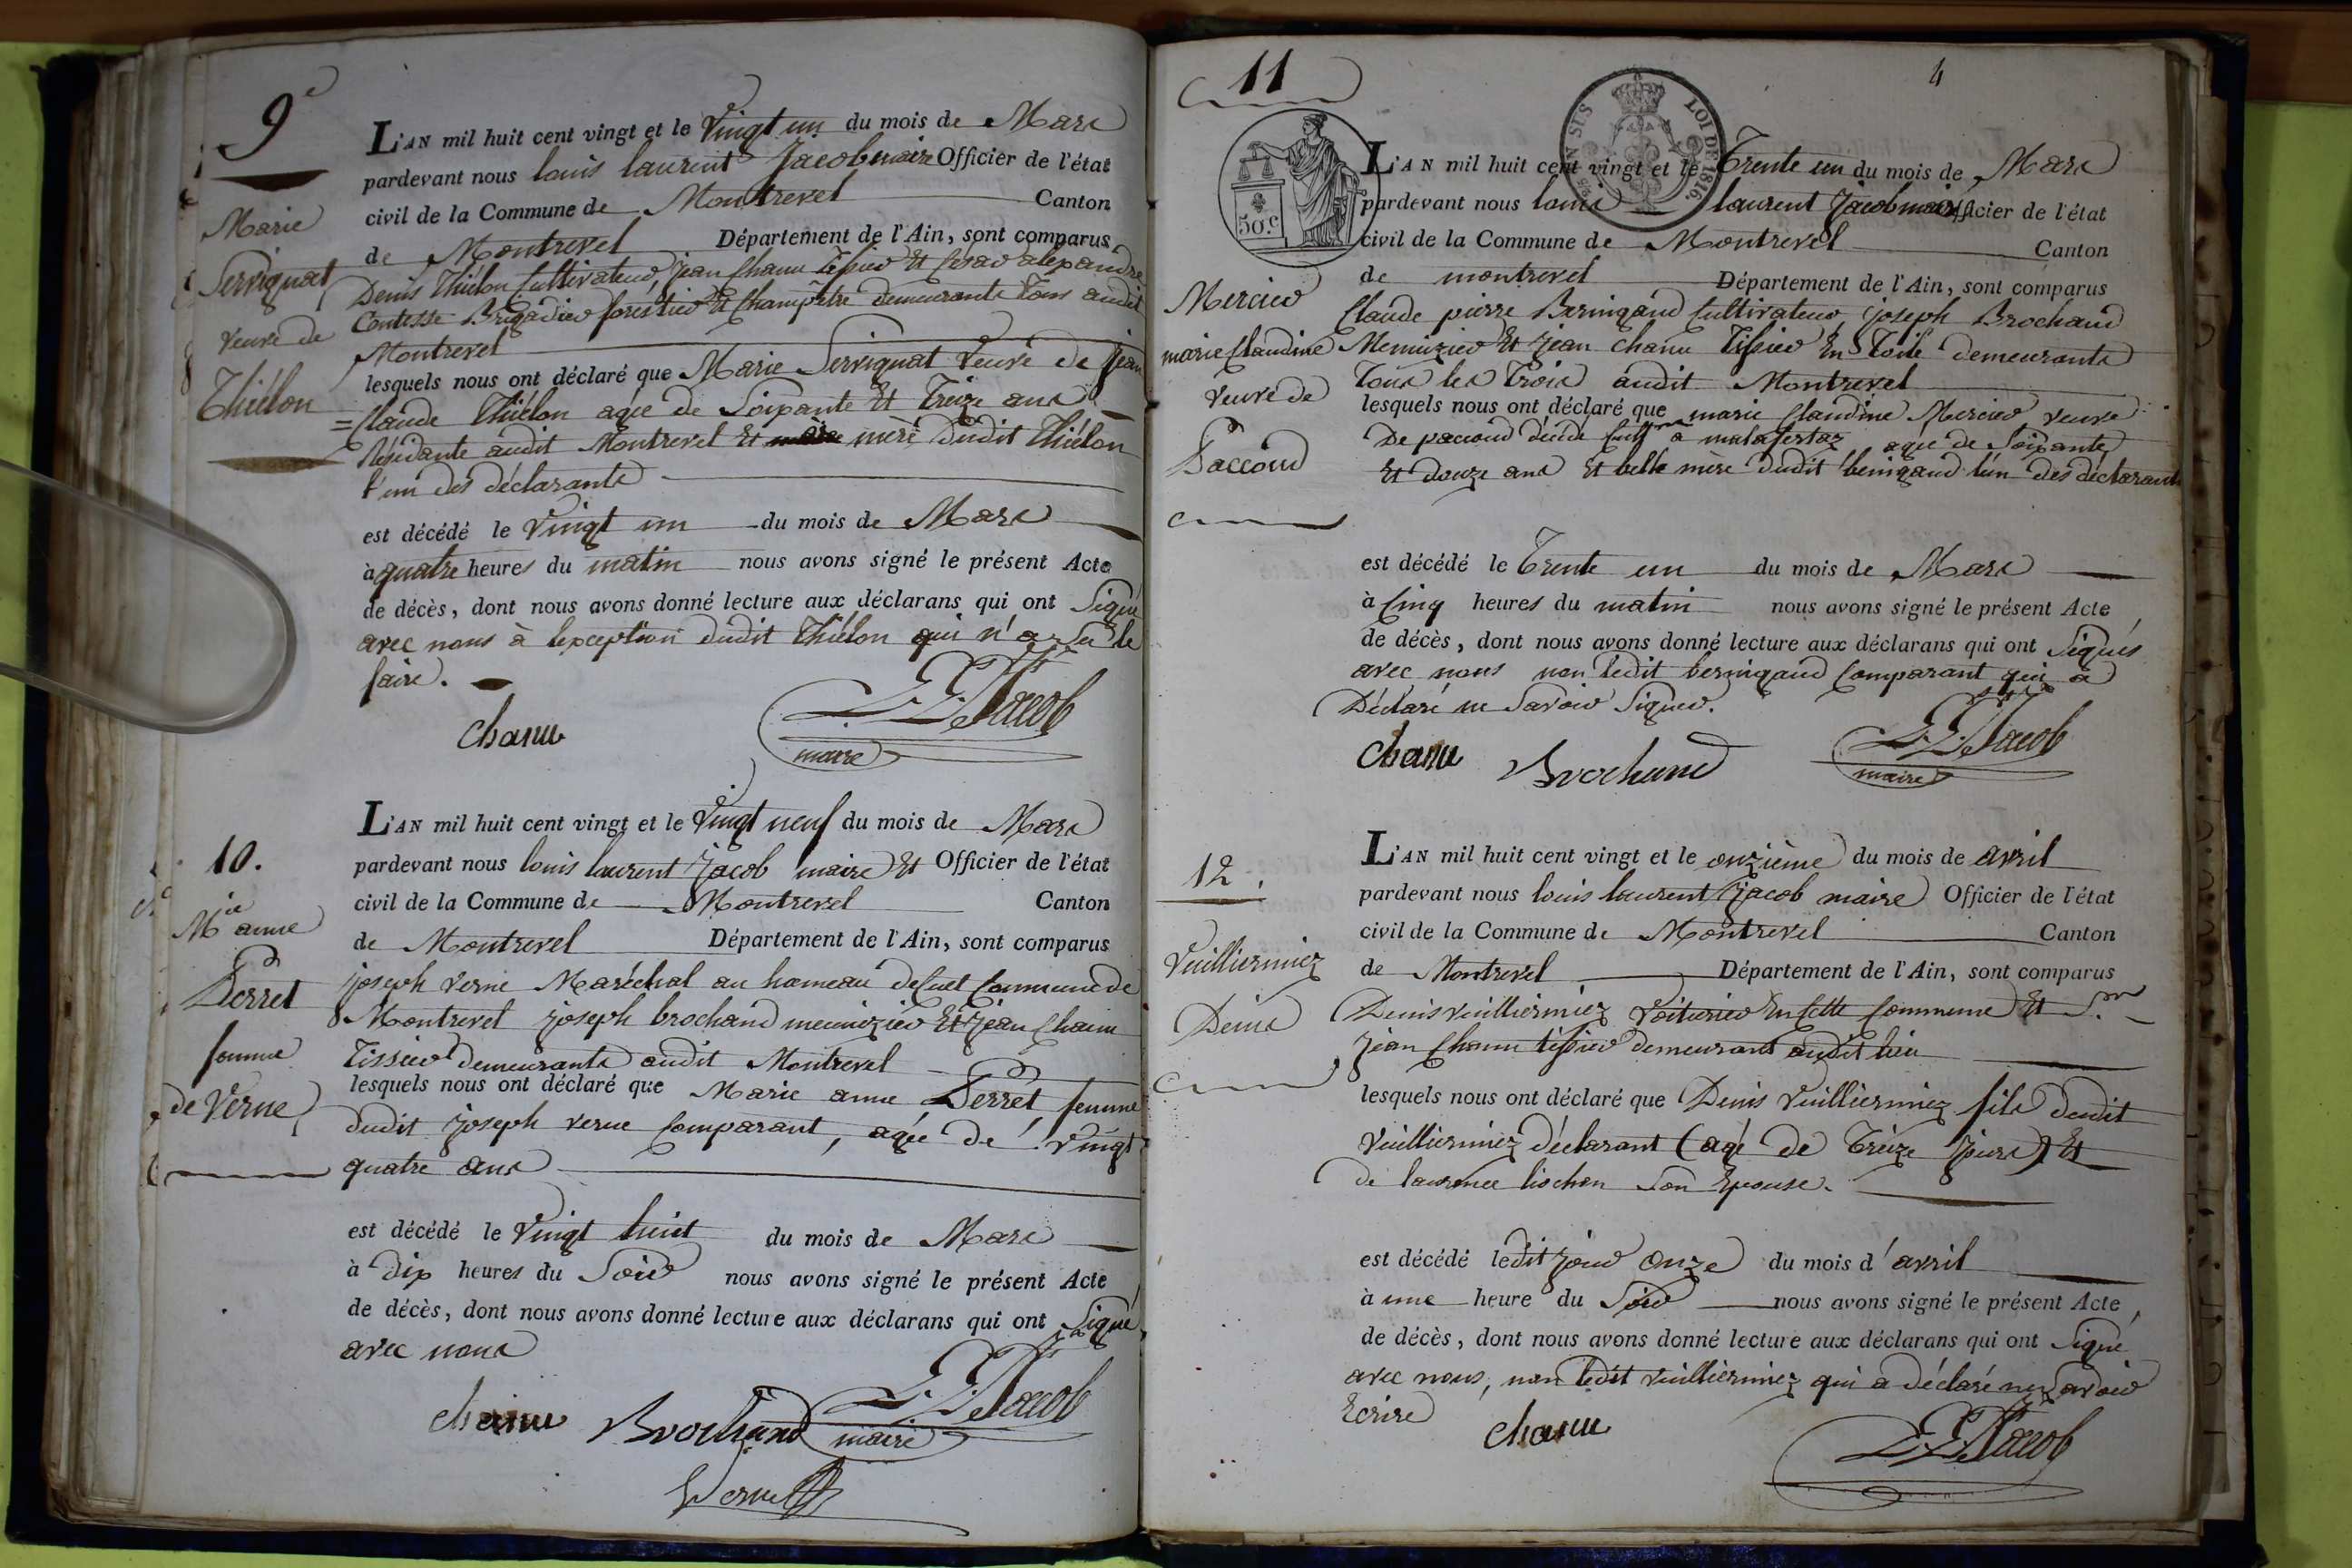 9e
Marie
Servignat
veuve de
Thiélon
L'AN mil huit cent vingt et le Vingt un du mois de Mars
pardevant nous louis laurent Jacob maire Officier de l'état
civil de la Commune de Montrevel Canton
de Montrevel Département de l'Ain, sont comparus
Denis Thiélon Cultivateur, jean Chanu Tissier Et Cesar alexandre
Contesse Brigadier forestier Et Champêtre demeurants Tous audit
Montrevel
lesquels nous ont déclaré que Marie Servignat Veuve de Jean
=Claude Thiélon agée de Soixante Et Treize ans
Résidante audit Montrevel Et mère dudit Thiélon
l'un des déclarants
est décédé le Vingt un du mois de Mars
à quatre heures du matin nous avons signé le présent Acte
de décès, dont nous avons donné lecture aux déclarans qui ont Signé
avec nous à lexception dudit Thiélon qui n'a Su le
faire.
Chanu
L. L. Jacob
maire
10.
Mie anne
Perret
femme
de Verne
L'AN mil huit cent vingt et le Vingt neuf du mois de Mars
pardevant nous louis laurent Jacob maire Et Officier de l'état
civil de la Commune de Montrevel Canton
de Montrevel Département de l'Ain, sont comparus
joseph Verne Maréchal au hameau de Cuet Commune de
Montrevel joseph brochand menuizier Et jean Chanu
Tissier demeurants audit Montrevel
lesquels nous ont déclaré que Marie anne Perret, femme
dudit joseph verne Comparant, agée de Vingt
quatre ans
est décédé le Vingt huit du mois de Mars
à dix heures du Soir nous avons signé le présent Acte
de décès, dont nous avons donné lecture aux déclarans qui ont Signé
avec nous
Chanu Brochand L. L. Jacob
maire
Verne
11
4
TIMBRE
LOI DE 1816.
50.c
Mercier
marie Claudine
veuve de
Paccoud
L'AN mil huit cent vingt et le Trente un du mois de Mars
pardevant nous louis laurent Jacob maire Officier de l'état
civil de la Commune de Montrevel Canton
de montrevel Département de l'Ain, sont comparus
Claude pierre Bernigaud Cultivateur, joseph Brochand
Menuizier Et jean Chanu Tissier En Toile demeurants
Tous les Trois audit Montrevel
lesquels nous ont déclaré que marie Claudine Mercier veuve
De paccoud décédé à malafertaz agée de Soixante
Et douze ans Et belle mère dudit bernigaud l'un des déclarants
est décédé le Trente un du mois de Mars
à Cinq heures du matin nous avons signé le présent Acte
de décès, dont nous avons donné lecture aux déclarans qui ont Signés
avec nous non ledit bernigaud Comparant qui a
Déclaré ne Savoir Signer.
Chanu Brochand L. L. Jacob
maire
12.
Vuilliermiez
Denis
L'AN mil huit cent vingt et le onzième du mois de avril
pardevant nous louis laurent Jacob maire Officier de l'état
civil de la Commune de Montrevel Canton
de Montrevel Département de l'Ain, sont comparus
Denis vuilliermiez Voiturier En Cette Commune Et Sr
jean Chanu tissier demeurant audit lieu
lesquels nous ont déclaré que Denis vuilliermiez fils dudit
vuilliermiez déclarant (agé de Treize jours) Et
de laurence liochon Son Epouse.
est décédé ledit jour Onze du mois d'avril
à une heure du Soir nous avons signé le présent Acte,
de décès, dont nous avons donné lecture aux déclarans qui ont Signé
avec nous, non ledit vuilliermiez qui a déclaré ne Savoir
Ecrire
Chanu
L. L. Jacob